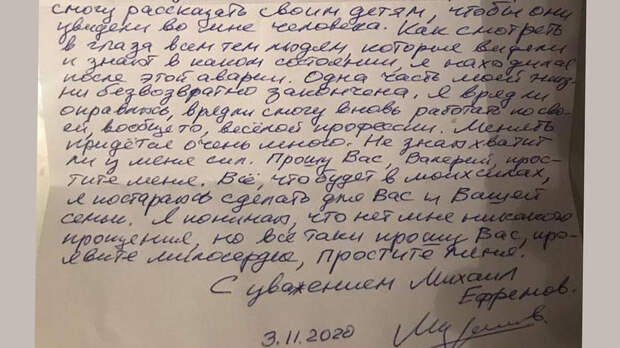 смогу рассказать своим детям, чтобы они
увидели во мне человека. Как смотреть
в глаза всем тем людям, которые видели
и знают в каком состоянии, я находился
после этой аварии. Одна часть моей жиз-
ни безвозвратно закончена. Я вряд ли
оправлюсь, вряд ли смогу вновь работать по сво-
ей, вообще то, весёлой профессии. Менять
придётся очень много. Не знаю хватит
ли у меня сил. Прошу Вас, Валерий, прос-
тите меня. Всё, что будет в моих силах,
я постараюсь сделать для Вас и Вашей
семьи. Я понимаю, что нет мне никакого
прощения, но всё таки прошу Вас, про-
явите милосердие, простите меня.
С уважением Михаил
Ефремов.
3.11.2020